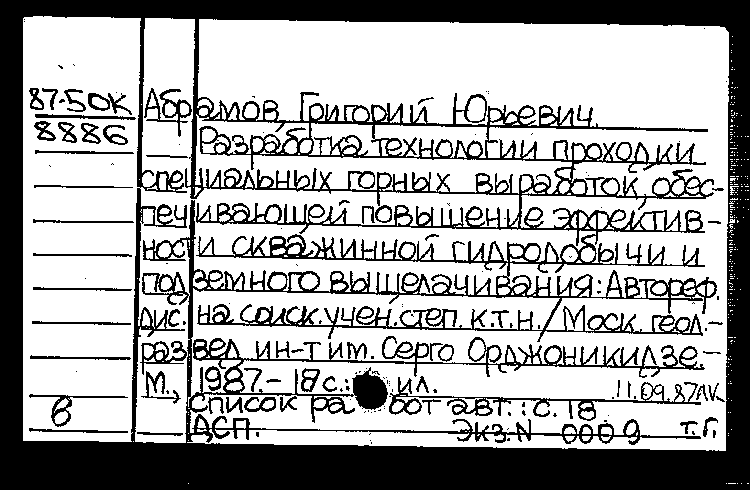 87-5ОК Абрамов, Григорий Юрьевич.
8886 Разработка технологии проходки
специальных горных выработок, обес-
печивающей повышение эффектив-
ности скважинной гидродобычи и
подземного выщелачивания: Автореф.
дис. на соиск. учен. степ. к.т.н./Моск. геол.-
развед. ин-т им. Серго Орджоникидзе.-
М., 1987.- 18 с.: ил. 11.09.87
в Список работ авт.: с. 18
ДСП. Экз. N 0009 т.г.